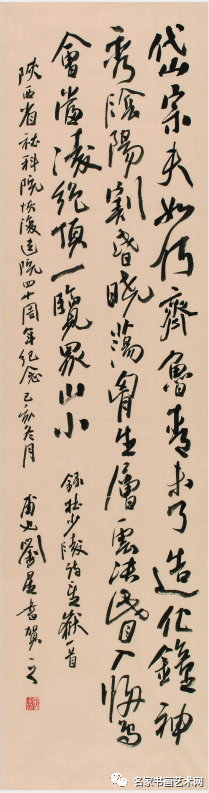 岱宗夫如何齊魯青未了造化鐘神
秀陰陽割昏曉蕩胷生層雲決眥入歸鳥
會當凌絶頂一覽眾山小
錄杜少陵詩望嶽一首
陝西省社科院恢復建院四十周年紀念己亥冬月
劉星書賀
名家书画艺术网